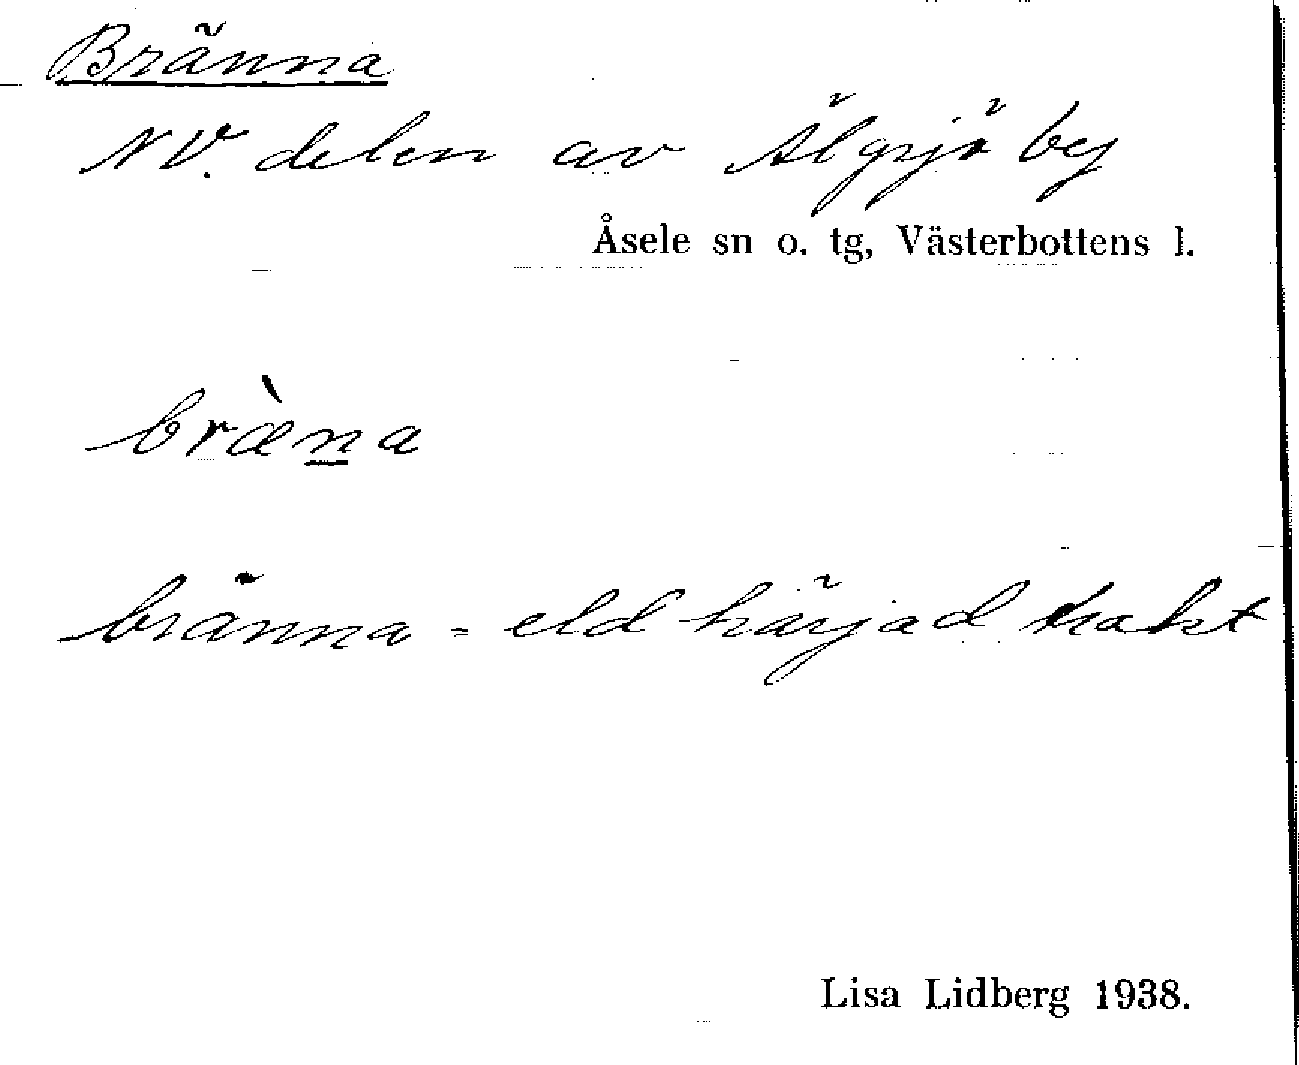 Bränna
NV. delen av Älgsjö by
Åsele sn o. tg, Västerbottens l.
bræ̀n̲a
bränna - eld härjad trakt
Lisa Lidberg 1938.